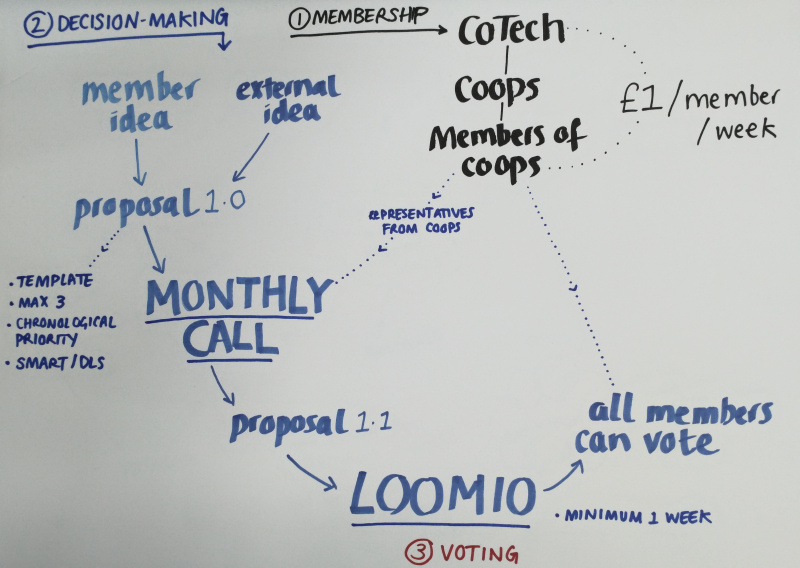 ② DECISION-MAKING
① MEMBERSHIP
CoTech
Coops
Members of
coops
£1/member
/week
member
idea
external
idea
proposal 1.0
REPRESENTATIVES
FROM COOPS
• TEMPLATE
• MAX 3
• CHRONOLOGICAL
PRIORITY
• SMART/DLS
MONTHLY
CALL
proposal 1.1
LOOMIO
all members
can vote
• MINIMUM 1 WEEK
③ VOTING